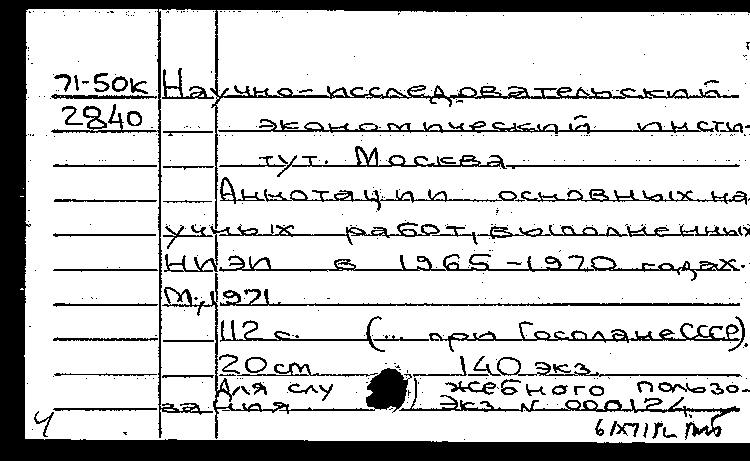 71-50к Научно-исследовательский
2840 экономический инсти-
тут. Москва.
Аннотации основных на-
учных работ, выполненных
НИЭИ в 1965-1970 годах.
М., 1971.
112 с. (... при Госплане СССР).
20 см 140 экз.
Для слу жебного пользо-
вания. Экз. N 000124